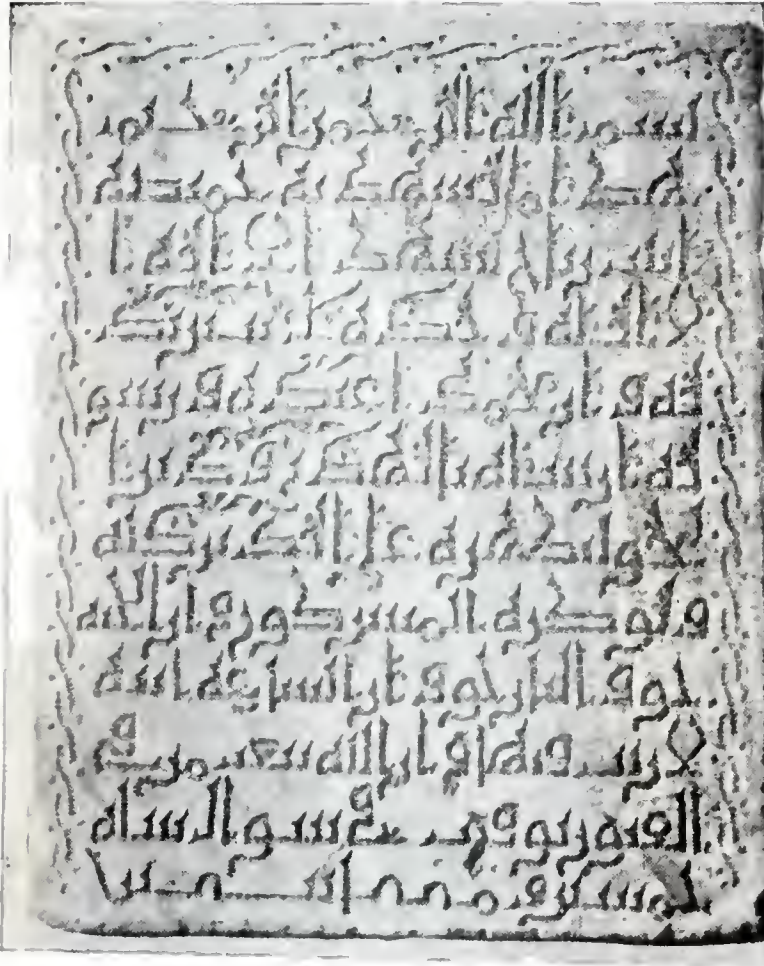 بسم الله الرحمن الرحيم
هذا ما يشهد به
يشهد ان لا اله ا
لا الله وحده لا شريك
له وان محمدا عبده ورسو
له ارسله بالهدى ودين ا
لحق ليظهره على الدين كله
ولو كره المشركون وان الجنة
حق والنار حق وان الساعة اتية
لا ريب فيها وان الله يبعث من في
القبور توفي شوال سنة